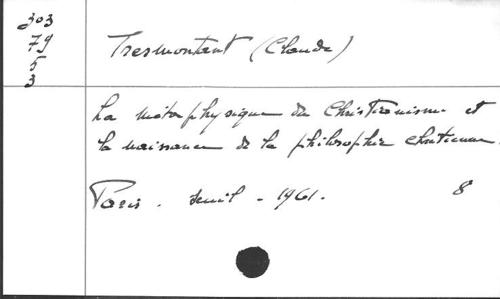 303
79
5
3
Tresmontant (Claude)
La métaphysique du Christianisme et
la naissance de la philosophie chrétienne.
Paris. Seuil - 1961. 8